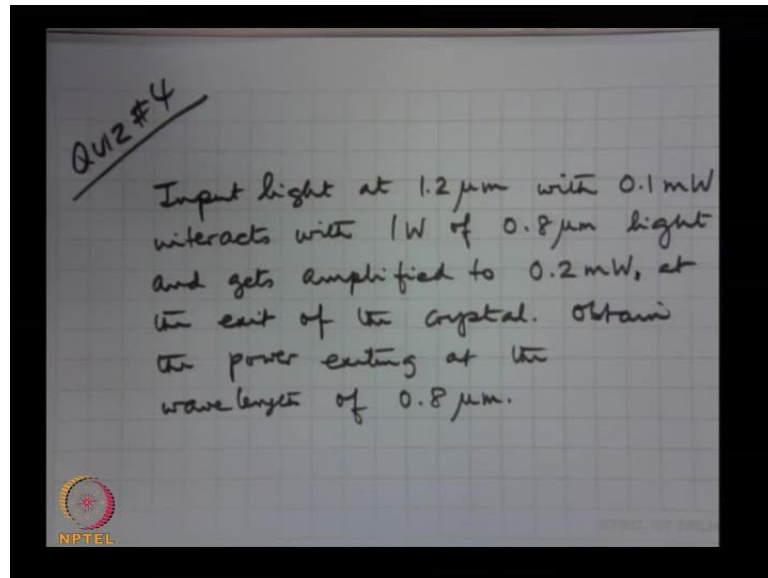 QUIZ #4
Input light at 1.2 μm with 0.1 mW
interacts with 1W of 0.8 μm light
and gets amplified to 0.2 mW, at
the exit of the crystal. Obtain
the power exiting at the
wavelength of 0.8 μm.
NPTEL